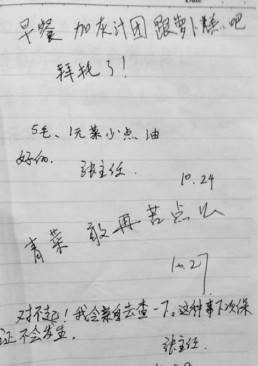 早餐 加灰计团 跟萝卜糕吧
拜托了!
5毛、1元菜小点油
好的. 张主任.
10.24
青菜 敢再苦点么
10.27
对不起!我会亲自去查一下。这种事下次保
证不会发生.
张主任.